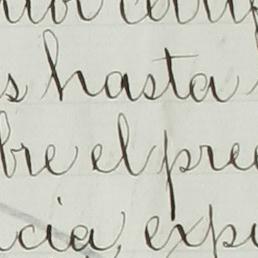 s hasta
bre el pre
cia, exp